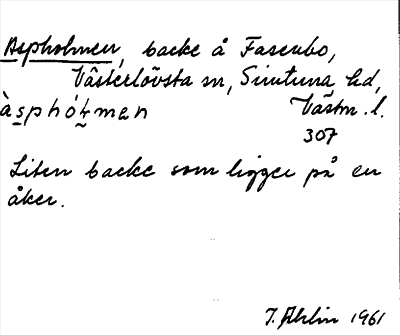 Aspholmen, backe å Fasenbo,
Västerlövsta sn, Simtuna hd,
àsphóɫmen Västm. l.
307
Liten backe som ligger på en
åker.
J. Ahlin 1961